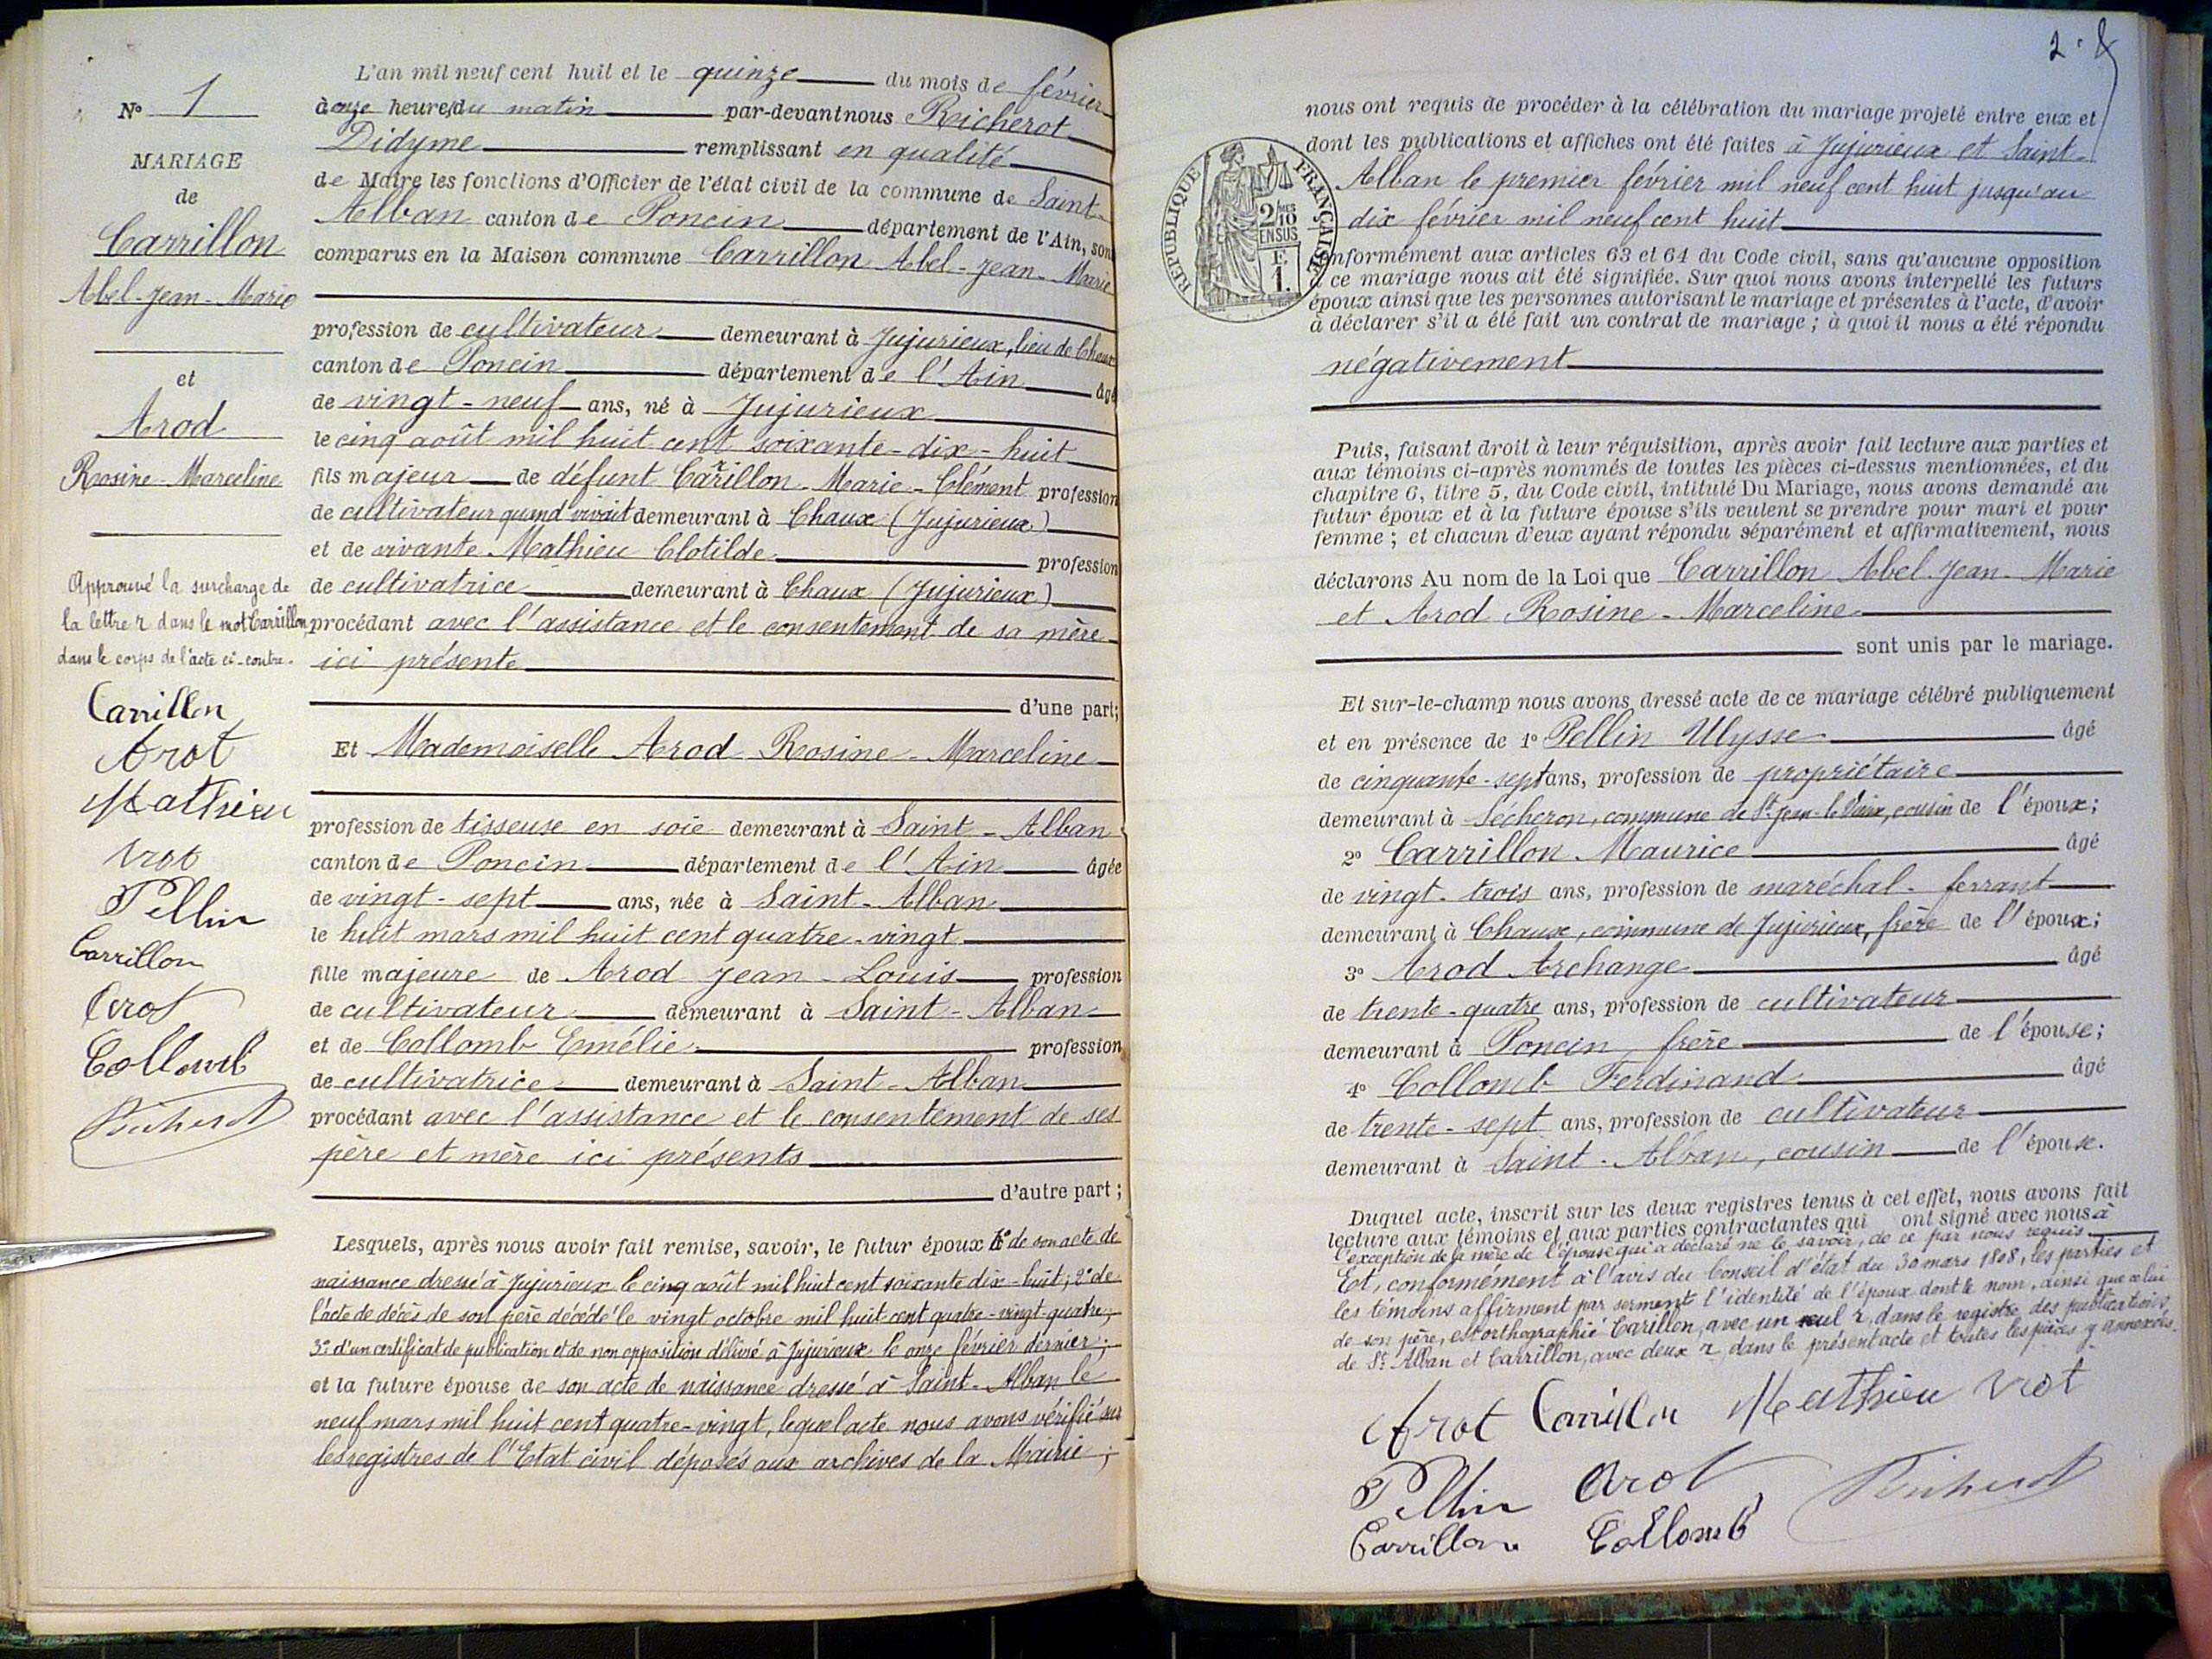 N° 1
MARIAGE
de
Carrillon
Abel-Jean-Marie
et
Arod
Rosine-Marceline
Approuvé la surcharge de
la lettre r dans le mot Carrillon,
dans le corps de l'acte ci-contre.
Carrillon
Arot
Mathieu
Arot
Pellin
Carrillon
Arot
Collomb
Richerot
L'an mil neuf cent huit et le quinze du mois de février
à onze heures du matin par-devant nous Richerot
Didyme remplissant en qualité
de Maire les fonctions d'Officier de l'état civil de la commune de Saint-
Alban canton de Poncin département de l'Ain, son
comparus en la Maison commune Carrillon Abel-Jean-Marie
profession de cultivateur demeurant à Jujurieux, lieu de Chaux
canton de Poncin département de l'Ain âgé
de vingt-neuf ans, né à Jujurieux
le cinq août mil huit cent soixante-dix-huit
fils majeur de défunt Carrillon-Marie-Clément profession
de cultivateur quand vivait demeurant à Chaux (Jujurieux)
et de vivante Mathieu Clotilde profession
de cultivatrice demeurant à Chaux (Jujurieux)
procédant avec l'assistance et le consentement de sa mère
ici présente
d'une part;
Et Mademoiselle Arod Rosine-Marceline
profession de tisseuse en soie demeurant à Saint-Alban
canton de Poncin département de l'Ain âgée
de vingt-sept ans, née à Saint-Alban
le huit mars mil huit cent quatre-vingt
fille majeure de Arod Jean-Louis profession
de cultivateur demeurant à Saint-Alban
et de Collomb Emélie profession
de cultivatrice demeurant à Saint-Alban
procédant avec l'assistance et le consentement de ses
père et mère ici présents
d'autre part;
Lesquels, après nous avoir fait remise, savoir, le futur époux 1° de son acte de
naissance dressé à Jujurieux le cinq août mil huit cent soixante dix-huit; 2° de
l'acte de décès de son père décédé le vingt octobre mil huit cent quatre-vingt-quatre;
3° d'un certificat de publication et de non opposition délivré à Jujurieux le onze février dernier;
et la future épouse de son acte de naissance dressé à Saint-Alban le
neuf mars mil huit cent quatre-vingt, lequel acte nous avons vérifié sur
les registres de l'Etat civil déposés aux archives de la Mairie;
2.
RÉPUBLIQUE FRANÇAISE
2/10
EN SUS
E
1.
nous ont requis de procéder à la célébration du mariage projeté entre eux et
dont les publications et affiches ont été faites à Jujurieux et Saint-
Alban le premier février mil neuf cent huit jusqu'au
dix février mil neuf cent huit
nformément aux articles 63 et 64 du Code civil, sans qu'aucune opposition
à ce mariage nous ait été signifiée. Sur quoi nous avons interpellé les futurs
époux ainsi que les personnes autorisant le mariage et présentes à l'acte, d'avoir
à déclarer s'il a été fait un contrat de mariage; à quoi il nous a été répondu
négativement
Puis, faisant droit à leur réquisition, après avoir fait lecture aux parties et
aux témoins ci-après nommés de toutes les pièces ci-dessus mentionnées, et du
chapitre 6, titre 5, du Code civil, intitulé Du Mariage, nous avons demandé au
futur époux et à la future épouse s'ils veulent se prendre pour mari et pour
femme; et chacun d'eux ayant répondu séparément et affirmativement, nous
déclarons Au nom de la Loi que Carrillon Abel-Jean-Marie
et Arod Rosine-Marceline
sont unis par le mariage.
Et sur-le-champ nous avons dressé acte de ce mariage célébré publiquement
et en présence de 1° Pellin Ulysse âgé
de cinquante-sept ans, profession de propriétaire
demeurant à Sécheron, commune de St Jean-le-Vieux, cousin de l'époux;
2° Carrillon Maurice âgé
de vingt-trois ans, profession de maréchal-ferrant
demeurant à Chaux, commune de Jujurieux, frère de l'époux;
3° Arod Archange âgé
de trente-quatre ans, profession de cultivateur
demeurant à Poncin, frère de l'épouse;
4° Collomb Ferdinand âgé
de trente-sept ans, profession de cultivateur
demeurant à Saint-Alban, cousin de l'épouse.
Duquel acte, inscrit sur les deux registres tenus à cet effet, nous avons fait
lecture aux témoins et aux parties contractantes qui ont signé avec nous à
l'exception de la mère de l'épouse qui a déclaré ne le savoir, de ce par nous requis.
Et, conformément à l'avis du Conseil d'état du 30 mars 1808, les parties et
les témoins affirment par serment l'identité de l'époux dont le nom, ainsi que celui
de son père, est orthographié Carillon, avec un seul r, dans le registre des publications
de St Alban et Carrillon, avec deux r, dans le présent acte et toutes les pièces y annexées.
Arot Carrillon Mathieu Arot
Pellin Arot Richerot
Carrillon Collomb